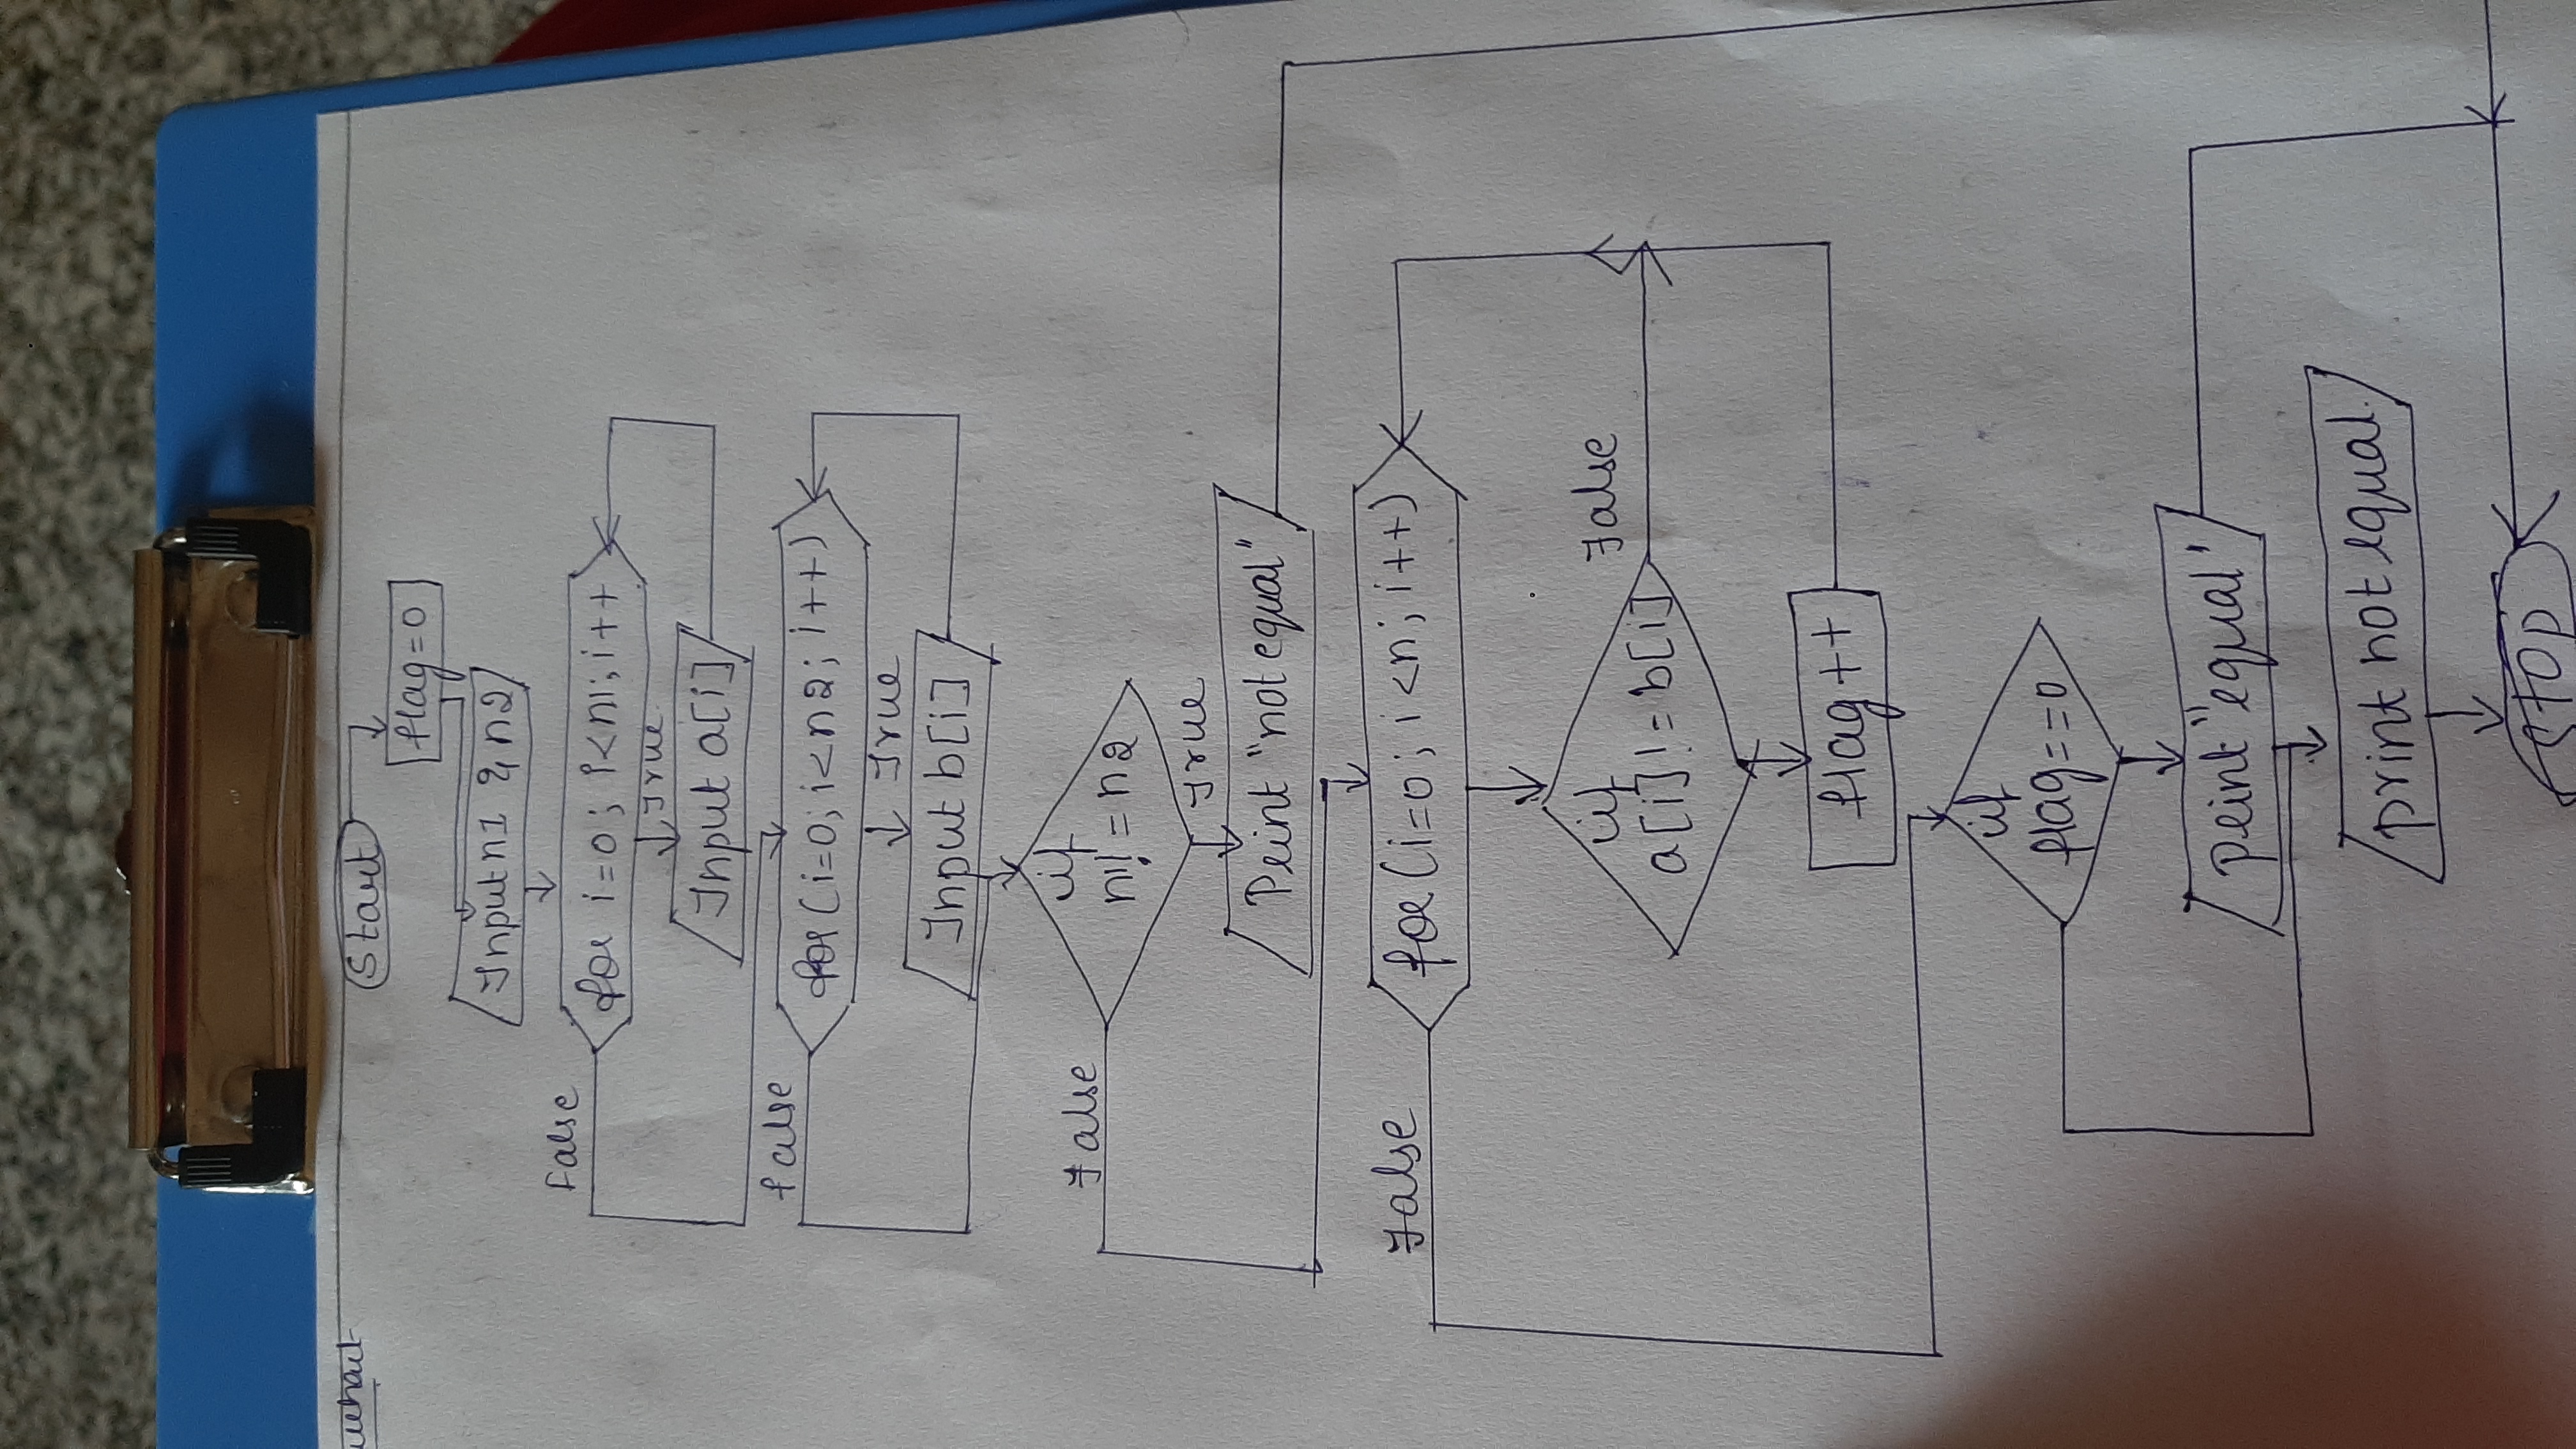 Start
flag=0
Input n1 & n2
False
for i=0; i<n1; i++
True
Input a[i]
false
for(i=0; i<n2; i++)
True
Input b[i]
False
if
n1!=n2
True
Print "not equal"
False
for(i=0; i<n; i++)
if
a[i]!=b[i]
False
flag++
if
flag==0
print "equal"
print not equal.
STOP